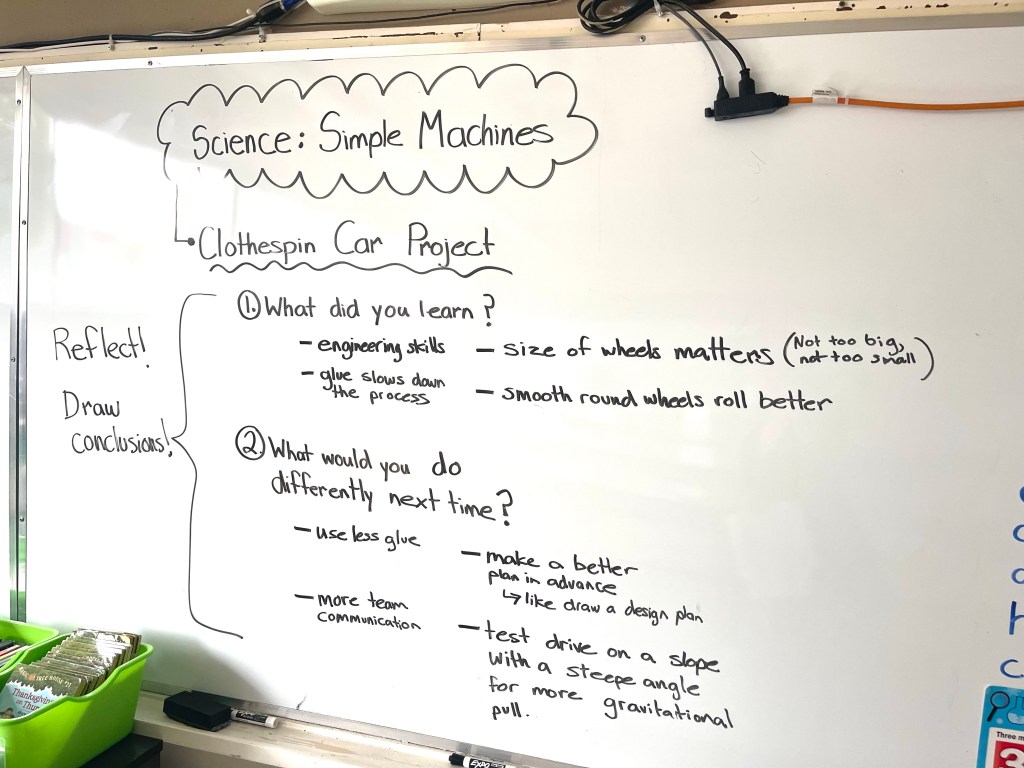 Science: Simple Machines
• Clothespin Car Project
Reflect!
Draw
conclusions!
1. What did you learn?
– engineering skills
– glue slows down
the process
– size of wheels matters (Not too big,
not too small)
– smooth round wheels roll better
2. What would you do
differently next time?
– use less glue
– more team
communication
– make a better
plan in advance
↳ like draw a design plan
– test drive on a slope
with a steepe angle
for more gravitational
pull.
TREE HOUSE
Thanksgiving
on Thur
EXPO
Three m
3